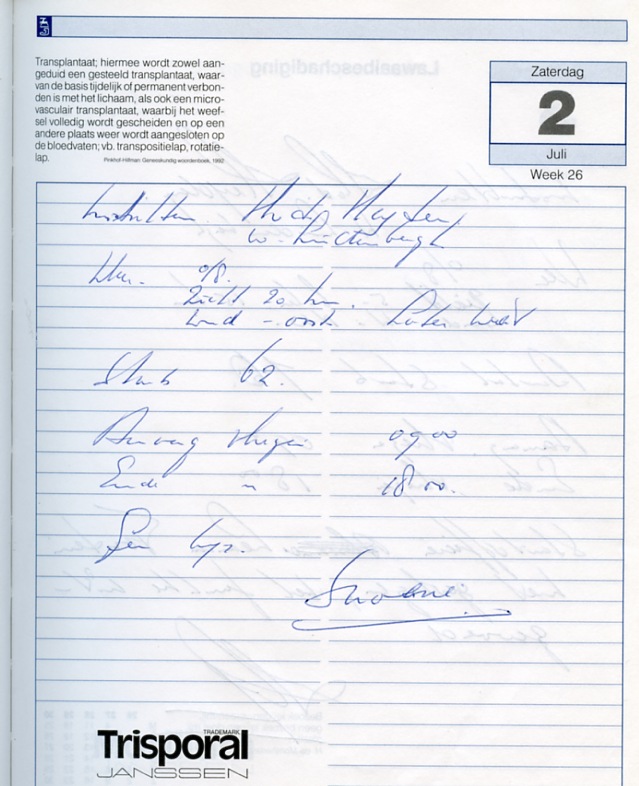 Transplantaat; hiermee wordt zowel aan-
geduid een gesteeld transplantaat, waar-
van de basis tijdelijk of permanent verbon-
den is met het lichaam, als ook een micro-
vasculair transplantaat, waarbij het weef-
sel volledig wordt gescheiden en op een
andere plaats weer wordt aangesloten op
de bloedvaten; vb. transpositielap, rotatie-
lap.
Pinkhof-Hilfman Geneeskundig woordenboek, 1992
Zaterdag
2
Juli
Week 26
0/8.
Zicht 20 km.
wind - oost.
Start 62.
Aanvang vliegen 09 00
Einde " 18 00.
Geen bijz.
TRADEMARK
Trisporal
JANSSEN